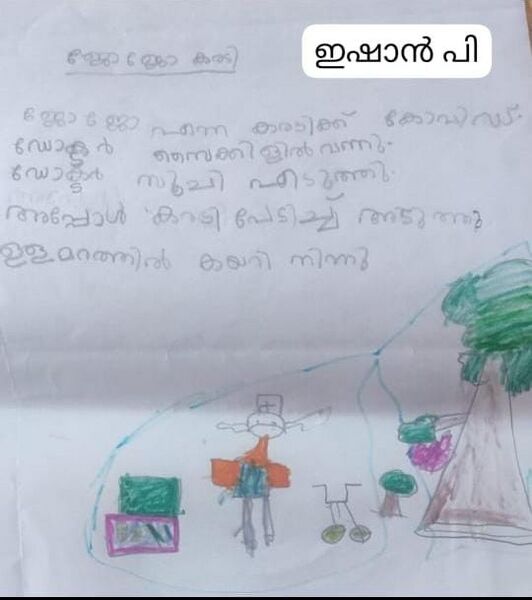 ഇഷാൻ പി
ജോജോ കരടി
ജോജോ എന്ന കരടിക്ക് കോവിഡ്.
ഡോക്ടർ ബൈക്കിളിൽ വന്നു.
ഡോക്ടർ സൂചി എടുത്തു.
അപ്പോൾ കരടി പേടിച്ച് അടുത്തു
ഉള്ള മരത്തിൽ കയറി നിന്നു